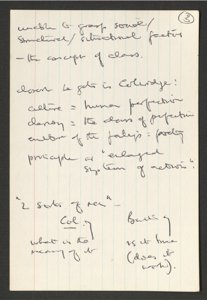 ③
unable to grasp social/
structural/situational factors
– the concept of class.
closest he gets is Coleridge:
culture = human perfection
clerisy = the class of perfection
"enlarged
system of action".
"2 sorts of men" –
Col. of
what is the
meaning of it
is it true
(does it
work).